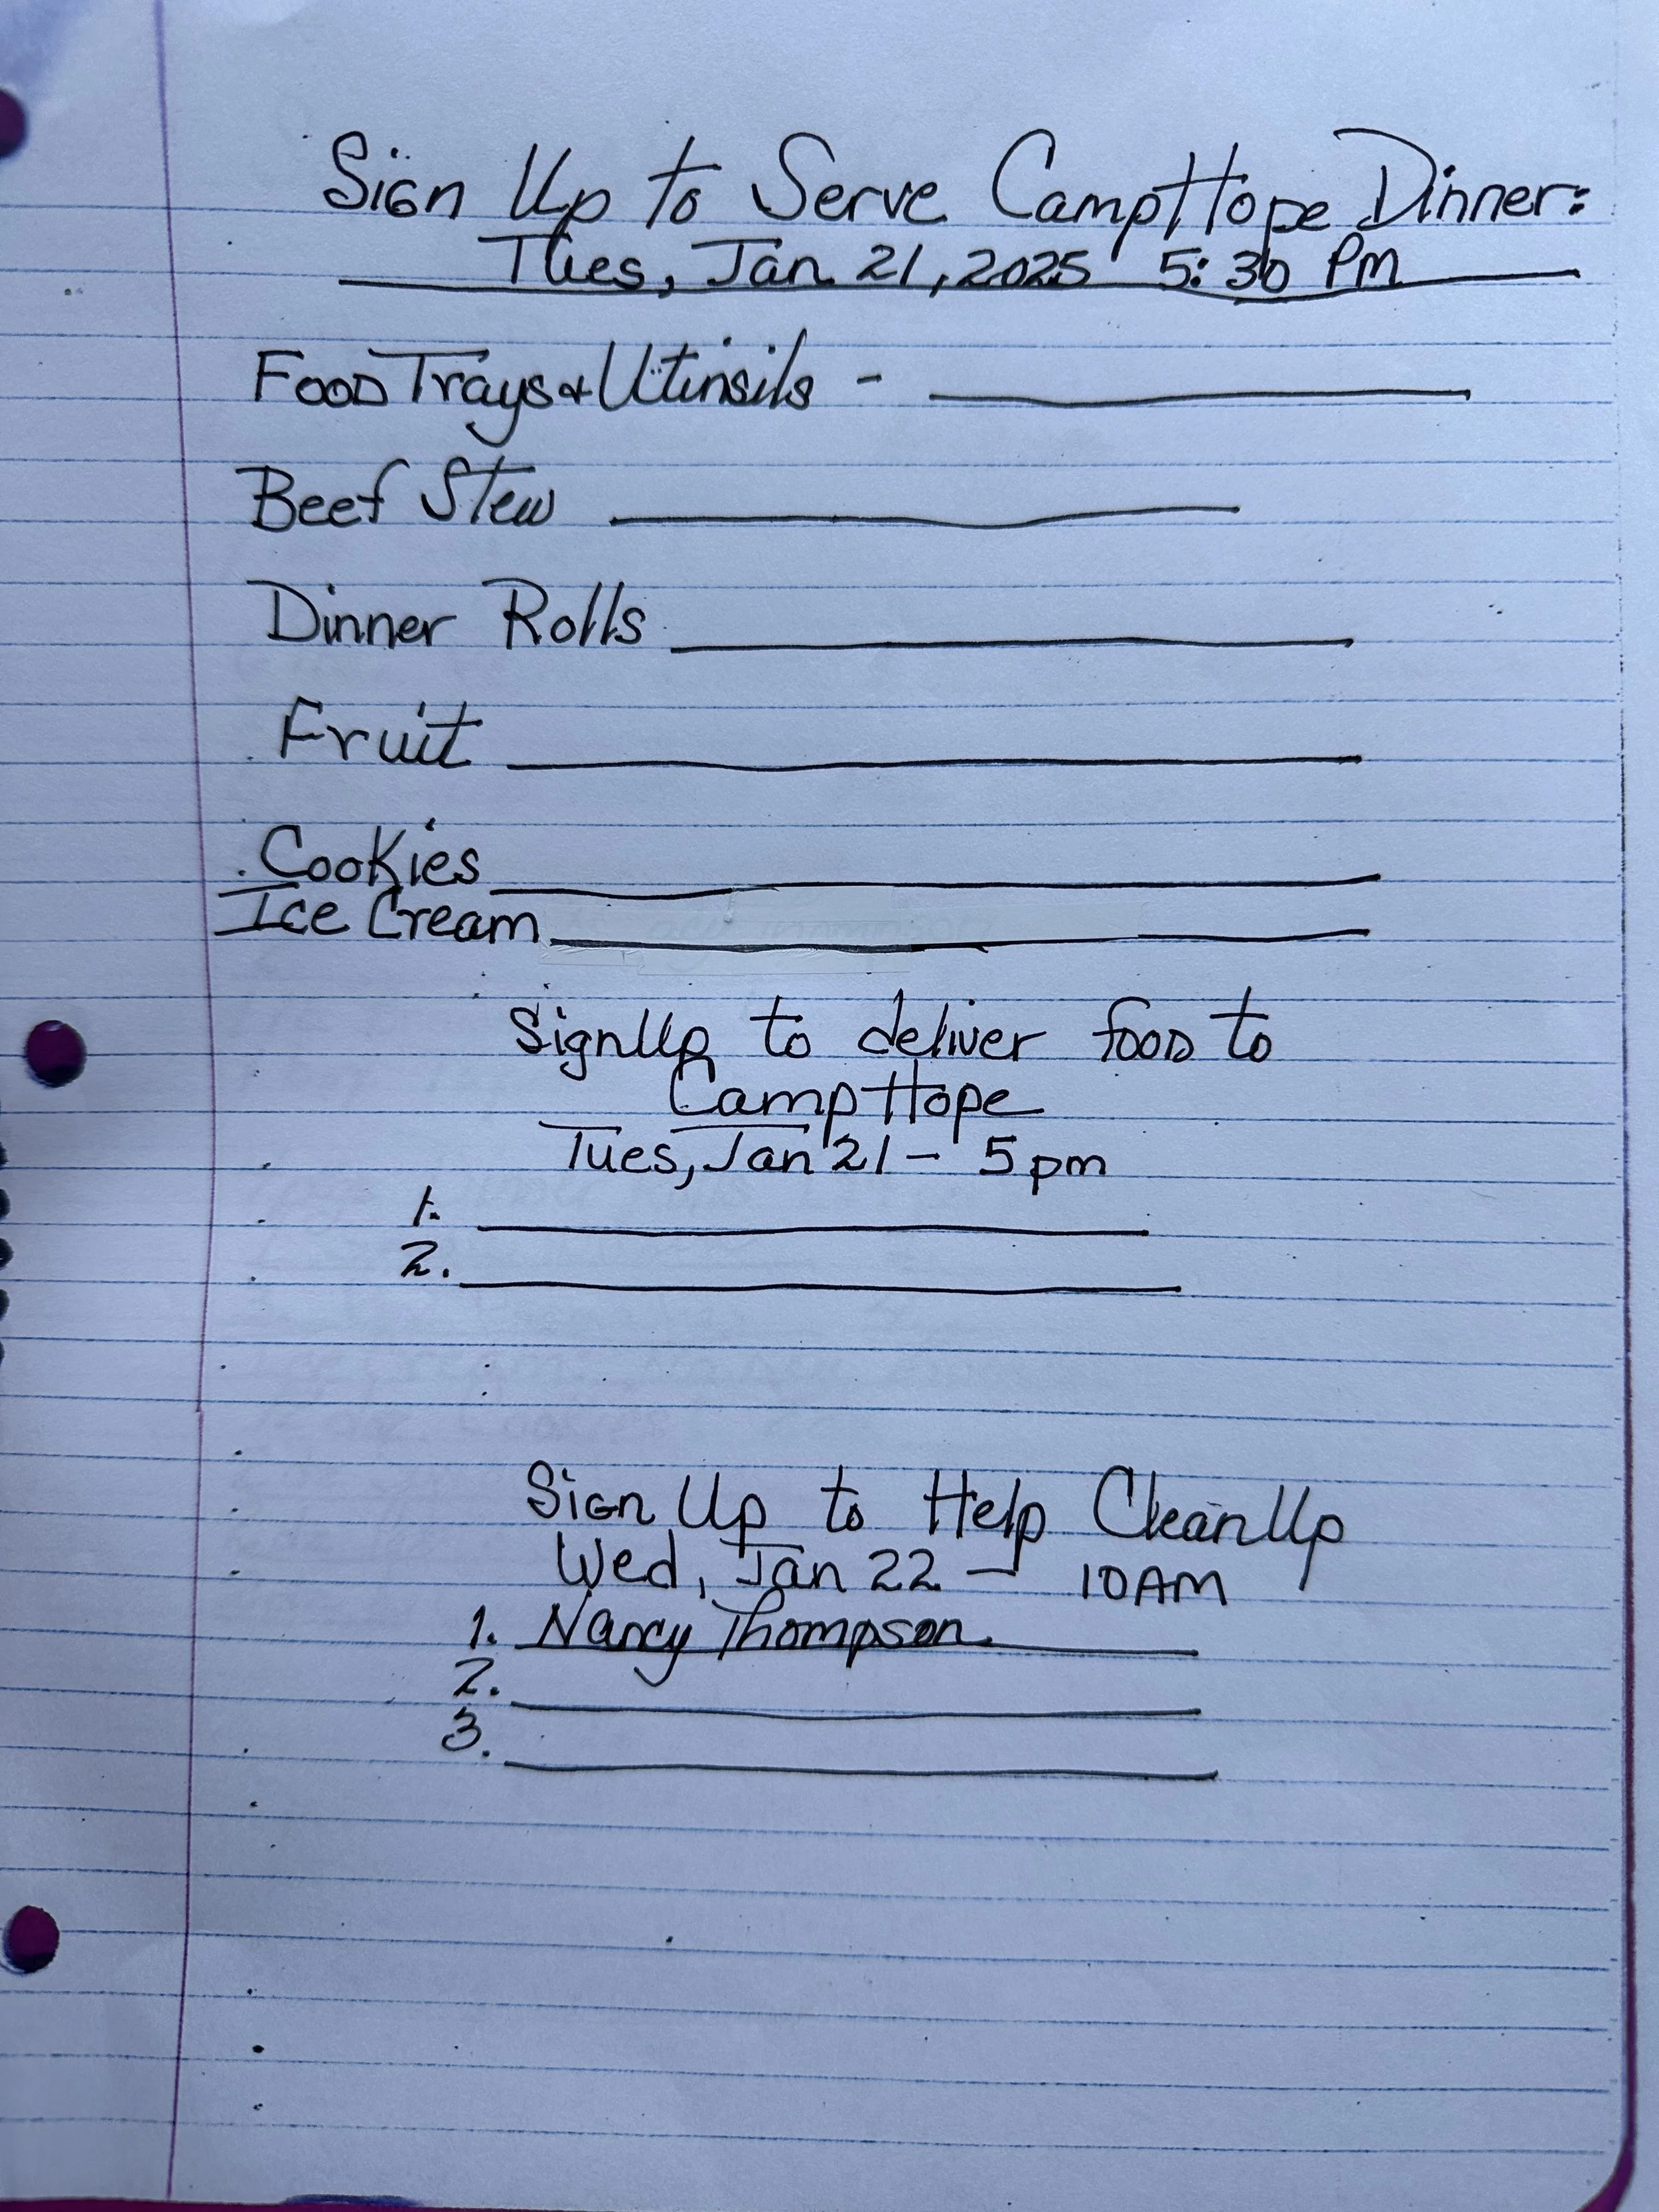 Sign Up to Serve Camp Hope Dinner:
Tues, Jan 21, 2025 5:30 Pm
Food Trays & Utinsils -
Beef Stew
Dinner Rolls
Fruit
Cookies
Ice Cream
Sign Up to deliver food to
Camp Hope
Tues, Jan 21 - 5 pm
1.
2.
Sign Up to Help Clean Up
Wed, Jan 22 - 10 AM
1. Nancy Thompson
2.
3.